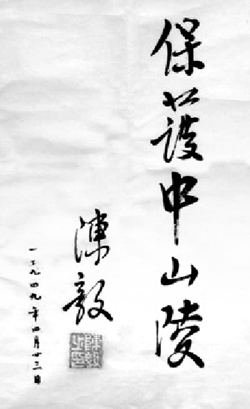 保護中山陵
陳毅
一九四九年四月廿三日